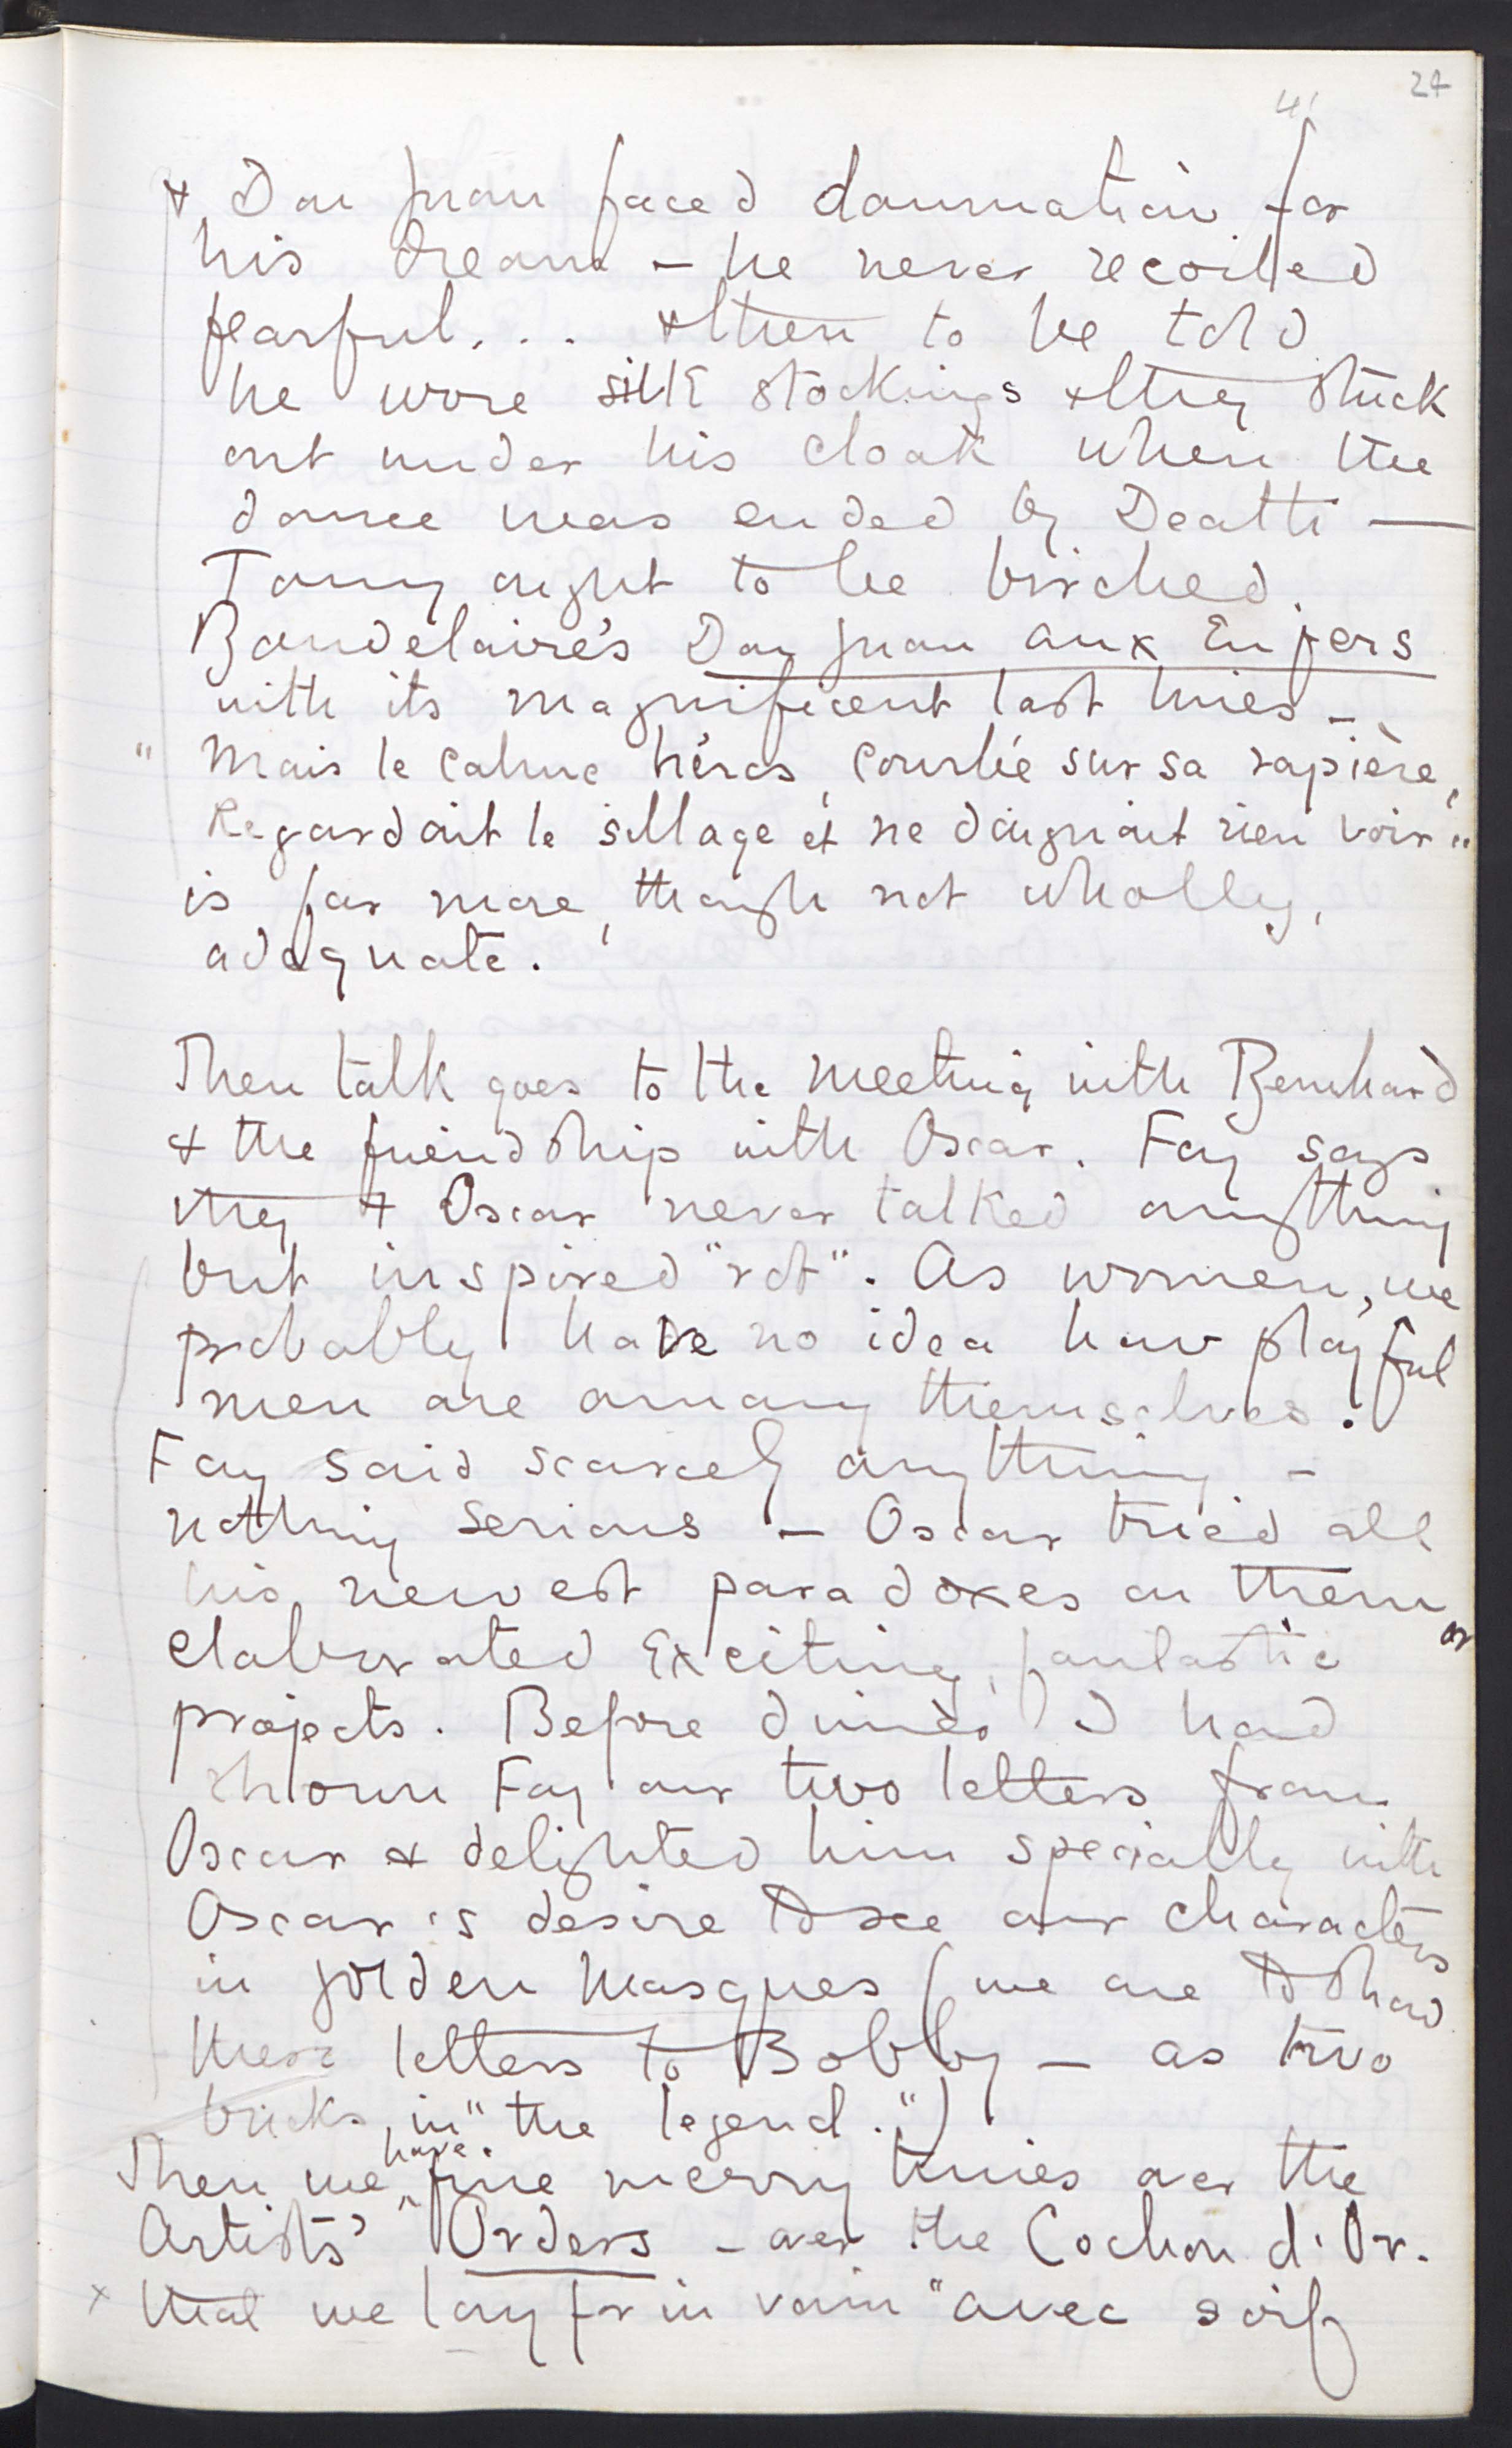 24
41
& Don Juan faced damnation for
his dream – he never recoiled
fearful. . . & then to be told
he wore silk stockings & they stuck
out under his cloak when the
dance was ended by Death —
Tomy ought to be birched.
Baudelaire's Don Juan aux Enfers
with its magnificent last lines –
" Mais le calme héros, courbé sur sa rapière,
Regardait le sillage et ne daignait rien voir "
is far more, though not wholly,
adequate.
Then talk goes to the meeting with Bernhard
& the friendship with Oscar. Fay says
they & Oscar never talked anything
but inspired "rot". As women, we
probably have no idea how playful
men are among themselves.
Fay said scarcely anything –
nothing serious – Oscar tried all
his newest paradoxes on them or
elaborated exciting, fantastic
projects. Before dinner I had
shown Fay our two letters from
Oscar & delighted him specially with
Oscar's desire to see our characters
in golden Masques (we are to show
these letters to Bobby – as two
bricks in "the legend.")
Then we have fine merry times over the
Artists' Orders – over the Cochon d'Or.
x that we long for in vain "avec soif